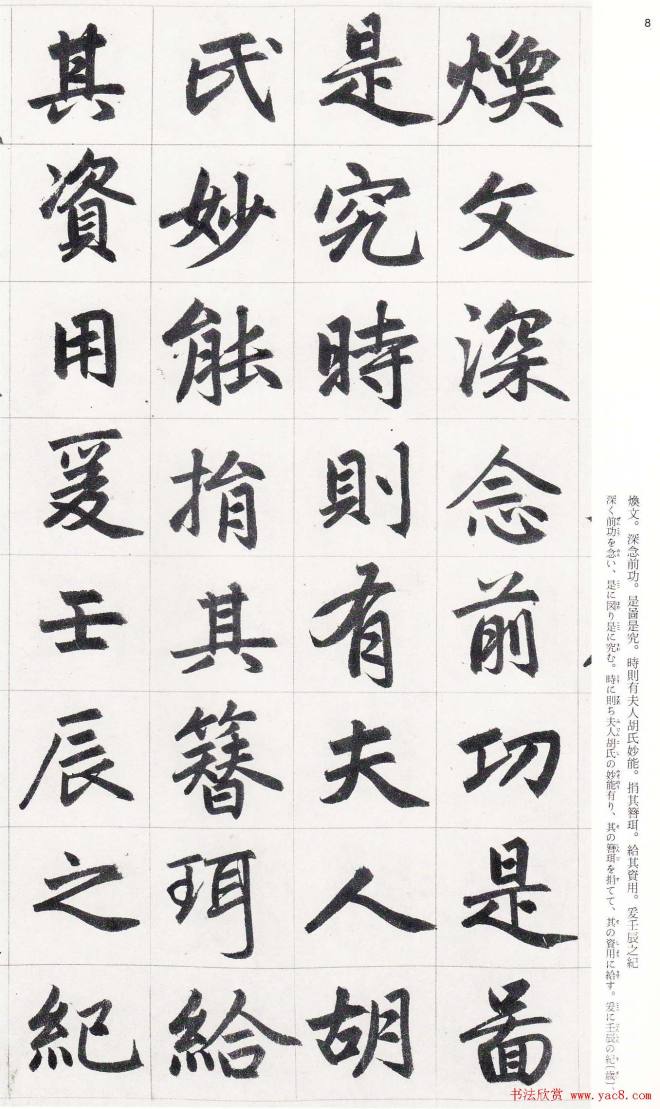 8
煥文深念前功是啚
是究時則有夫人胡
氏妙能捐其簪珥給
其資用爰壬辰之紀
煥文。深念前功。是啚是究。時則有夫人胡氏妙能。捐其簪珥。給其資用。爰壬辰之紀
深く前功を念い、是に図り是に究む。時に則ち夫人胡氏の妙能有り、其の簪珥を捐てて、其の資用に給す。爰に壬辰の紀(歳)、
书法欣赏 www.yac8.com